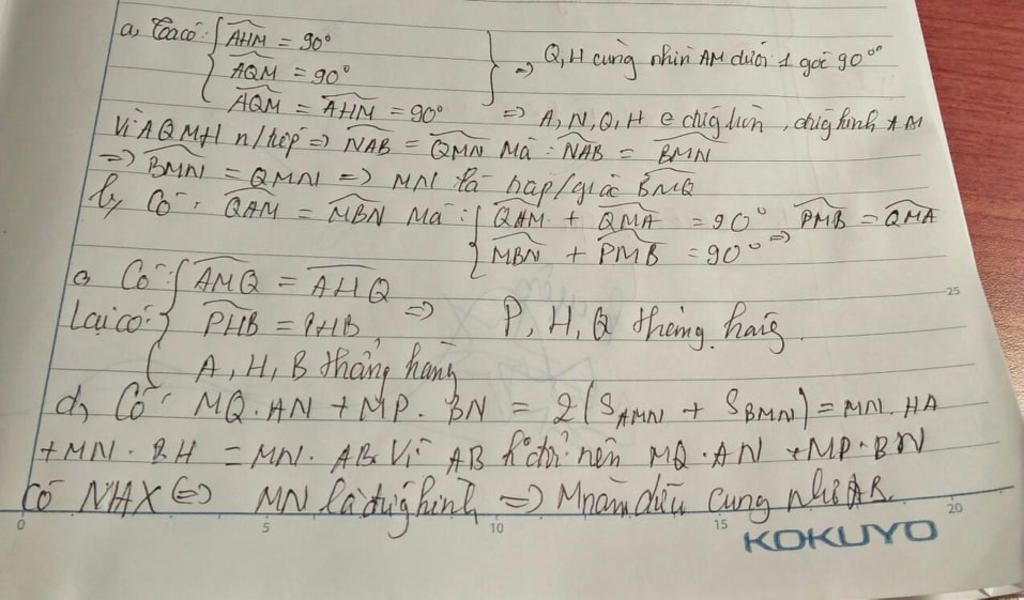 a, Ta có: { AHM = 90° } => Q, H cùng nhìn AM dưới 1 góc 90°
AQM = 90°
AQM = AHM = 90° => A, N, Q, H e đường tròn, đường kính AM
Vì AQMH n/tiếp => NAB = QMN Mà: NAB = BMN
=> BMN = QMN => MN là p/giác BMQ
b, Có: QAM = MBN Mà: { QAM + QMA = 90° PMB = QMA
MBN + PMB = 90° =>
c, Có: { AMQ = AHQ
Lại có: PHB = PHB => P, H, Q thẳng hàng.
A, H, B thẳng hàng
d, Có: MQ.AN + MP.BN = 2(SAMN + SBMN) = MN.HA
+ MN.BH = MN.AB Vì AB nên MQ.AN + MP.BN
Có MAX <=> MN là đường kính => M nằm cung nhỏ AB.
0 5 10 15 20
25
KOKUYO